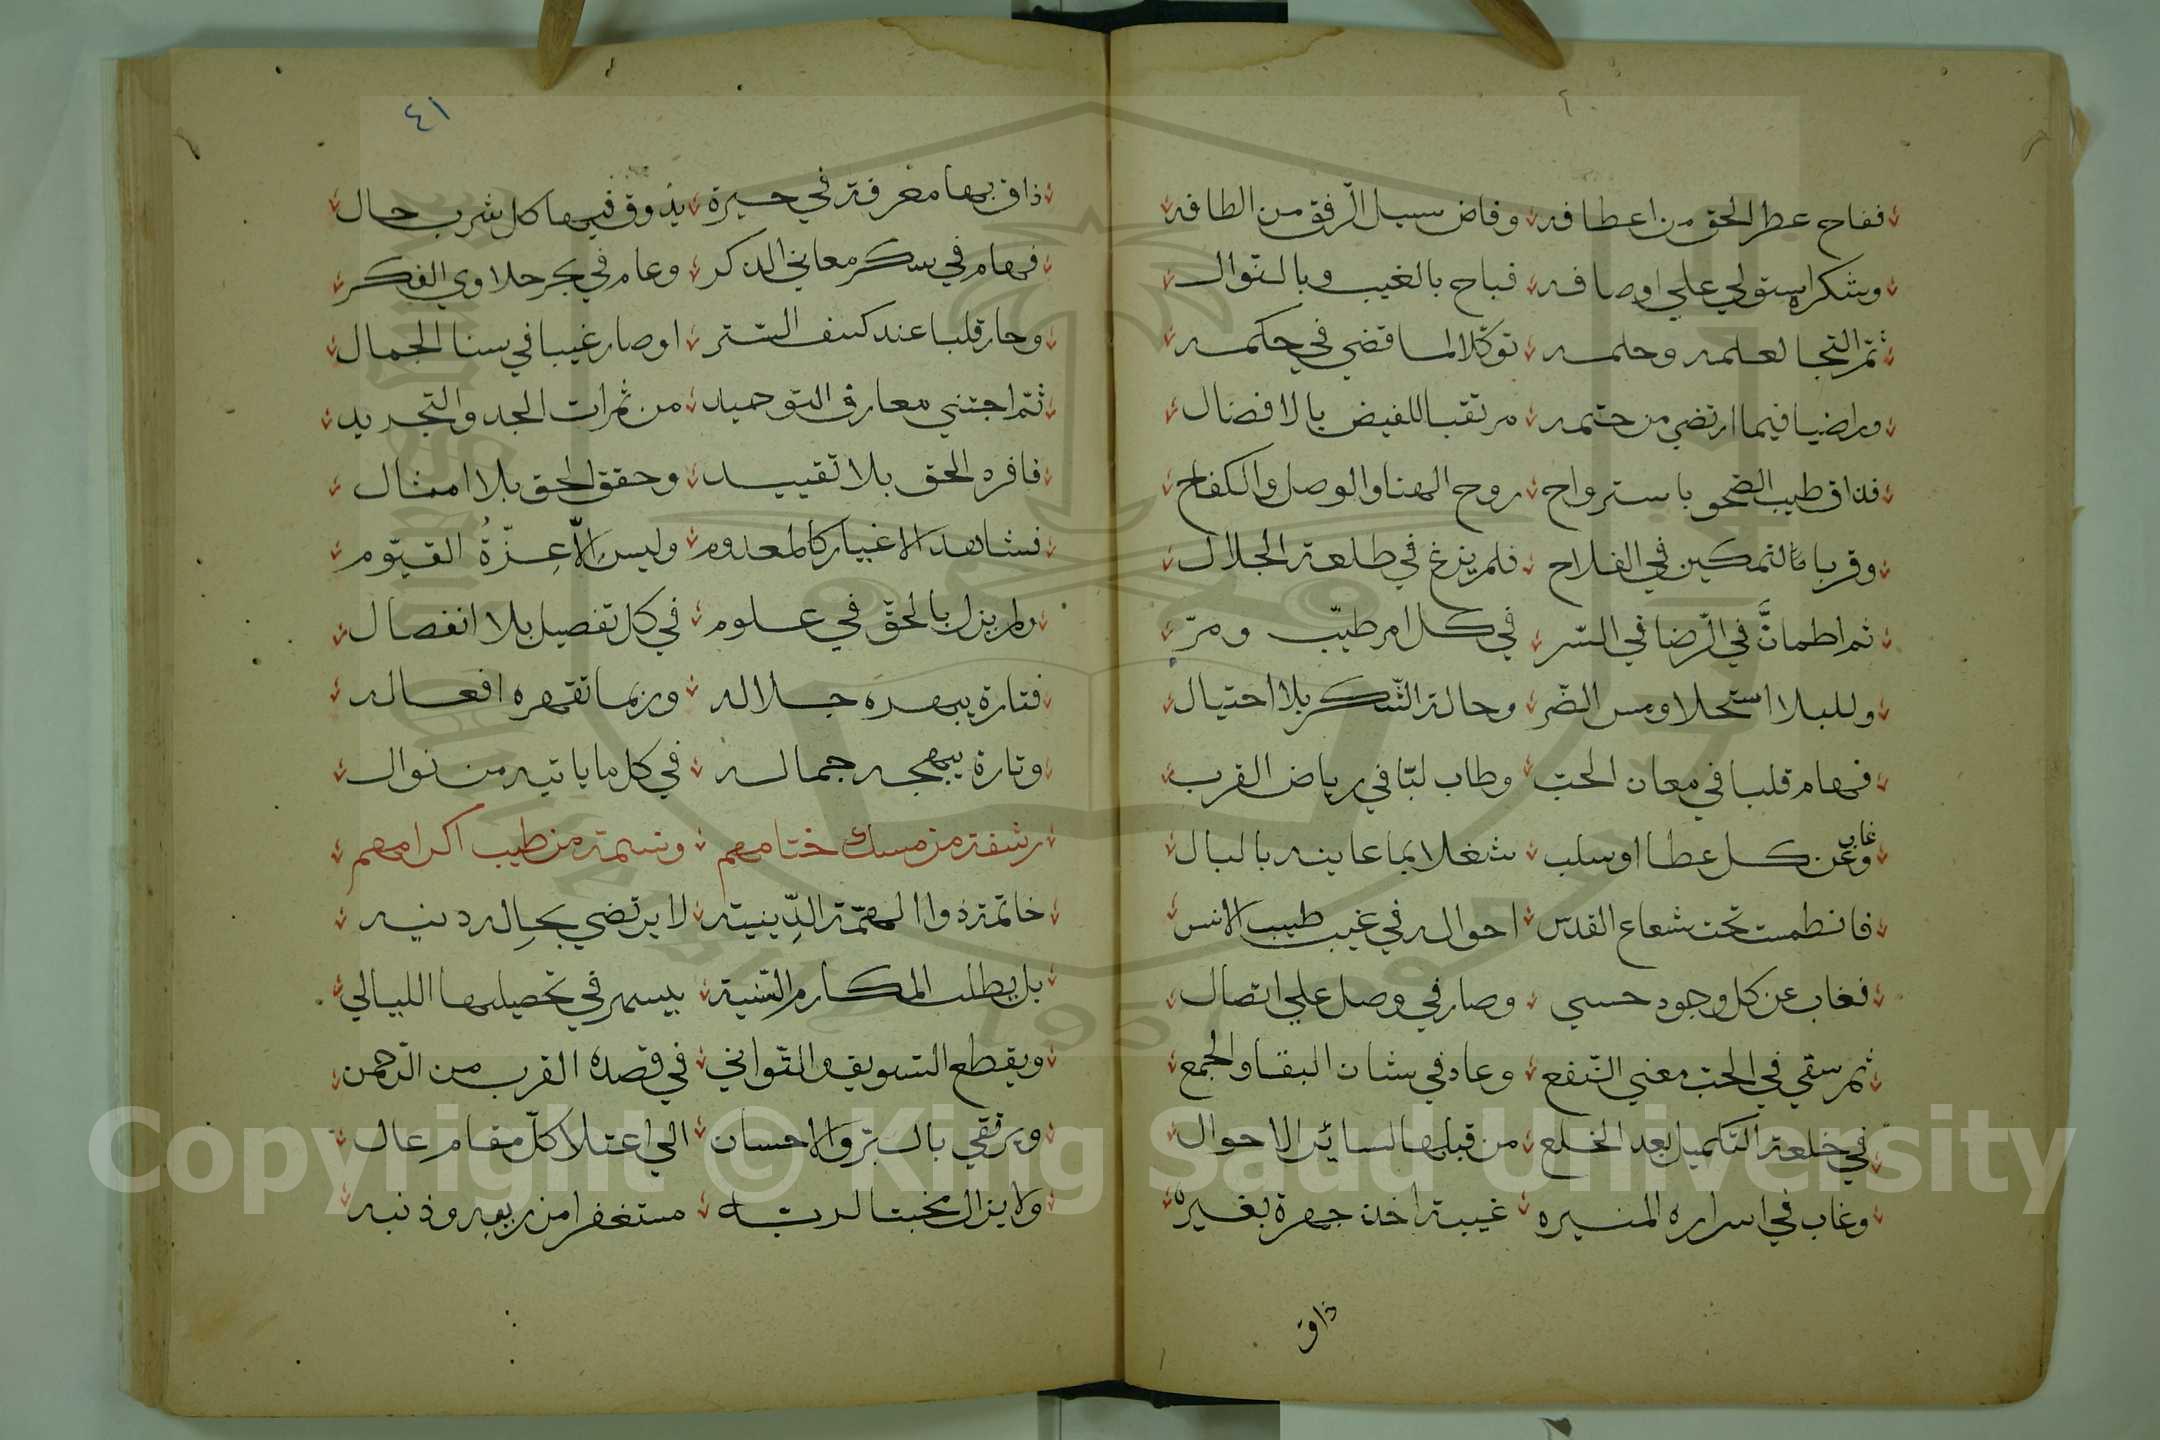 ففاح عطر الحق من اعطافه وفاض سيل الرفق من الطافه
وشكره استولي علي اوصافه فباح بالغيب وبالنوال
ثم التجا لعلمه وحلمه توكلا لما قضي في حكمه
وراضيا فيما ارتضي من حتمه مرتقبا للفيض بالافضال
فذاق طيب الصحو باسترواح روح الهنا والوصل والكفاح
وقر بالتمكين في الفلاح فلم يزغ في طلعة الجلال
ثم اطمأنَّ في الرّضا في السّر في كل امر طيّب ومرّ
وللبلا استحلا ومس الضّر وحالة الشّكر بلا احتيال
فهام قلبا في معان الحب وطاب لبّا في رياض القرب
غاب وعن كل عطا او سلب شغلا بما عاينه بالبال
فانطمست تحت شعاع القدس احواله في غيب طيب الانس
فغاب عن كل وجود حسي وصار في وصل علي اتصال
ثم سقي في الحب معني النّفع وعاد في شان البقا والجمع
في خلعة التكميل بعد الخلع من قبلها لسائر الاحوال
وغاب في اسراره المنيره غيبة اخذ جهرة بغيره
ذاق
٤١
ذاق بها معرفة في حيرة يذوق فيها كل شرب حال
فهام في سكر معاني الذكر وعام في بحر حلاوي الفكر
وحار قلبا عند كشف الستر او صار غيبا في سنا الجمال
ثم اجتني معارف التوحيد من ثمرات الجد والتجريد
فافره الحق بلا تقييد وحقق الحق بلا امثال
فشاهد الاغيار كالمعدوم وليس الّا عِزّةُ القيّوم
ولم يزل بالحقّ في علوم في كل تفصيل بلا انفصال
فتارة يبهره جلاله وربما تقهره افعاله
وتارة يبهجه جماله في كل ما ياتيه من نوال
رشفة من مسك ختامهم ونسمة من طيب اكرامهم
خاتمة ذوا الهمّة الدّينيّة لا يرتضي بحاله دنيه
بل يطلب المكارم السّنية يسهر في تحصيلها الليالي
ويقطع التسويف والتواني في قصده القرب من الرّحمن
ويرتقي بالبرّ والاحسان الي اعتلا كلّ مقام عال
ولا يزال مخبتا لربه مستغفرا من ريبه وذنبه
Copyright © King Saud University